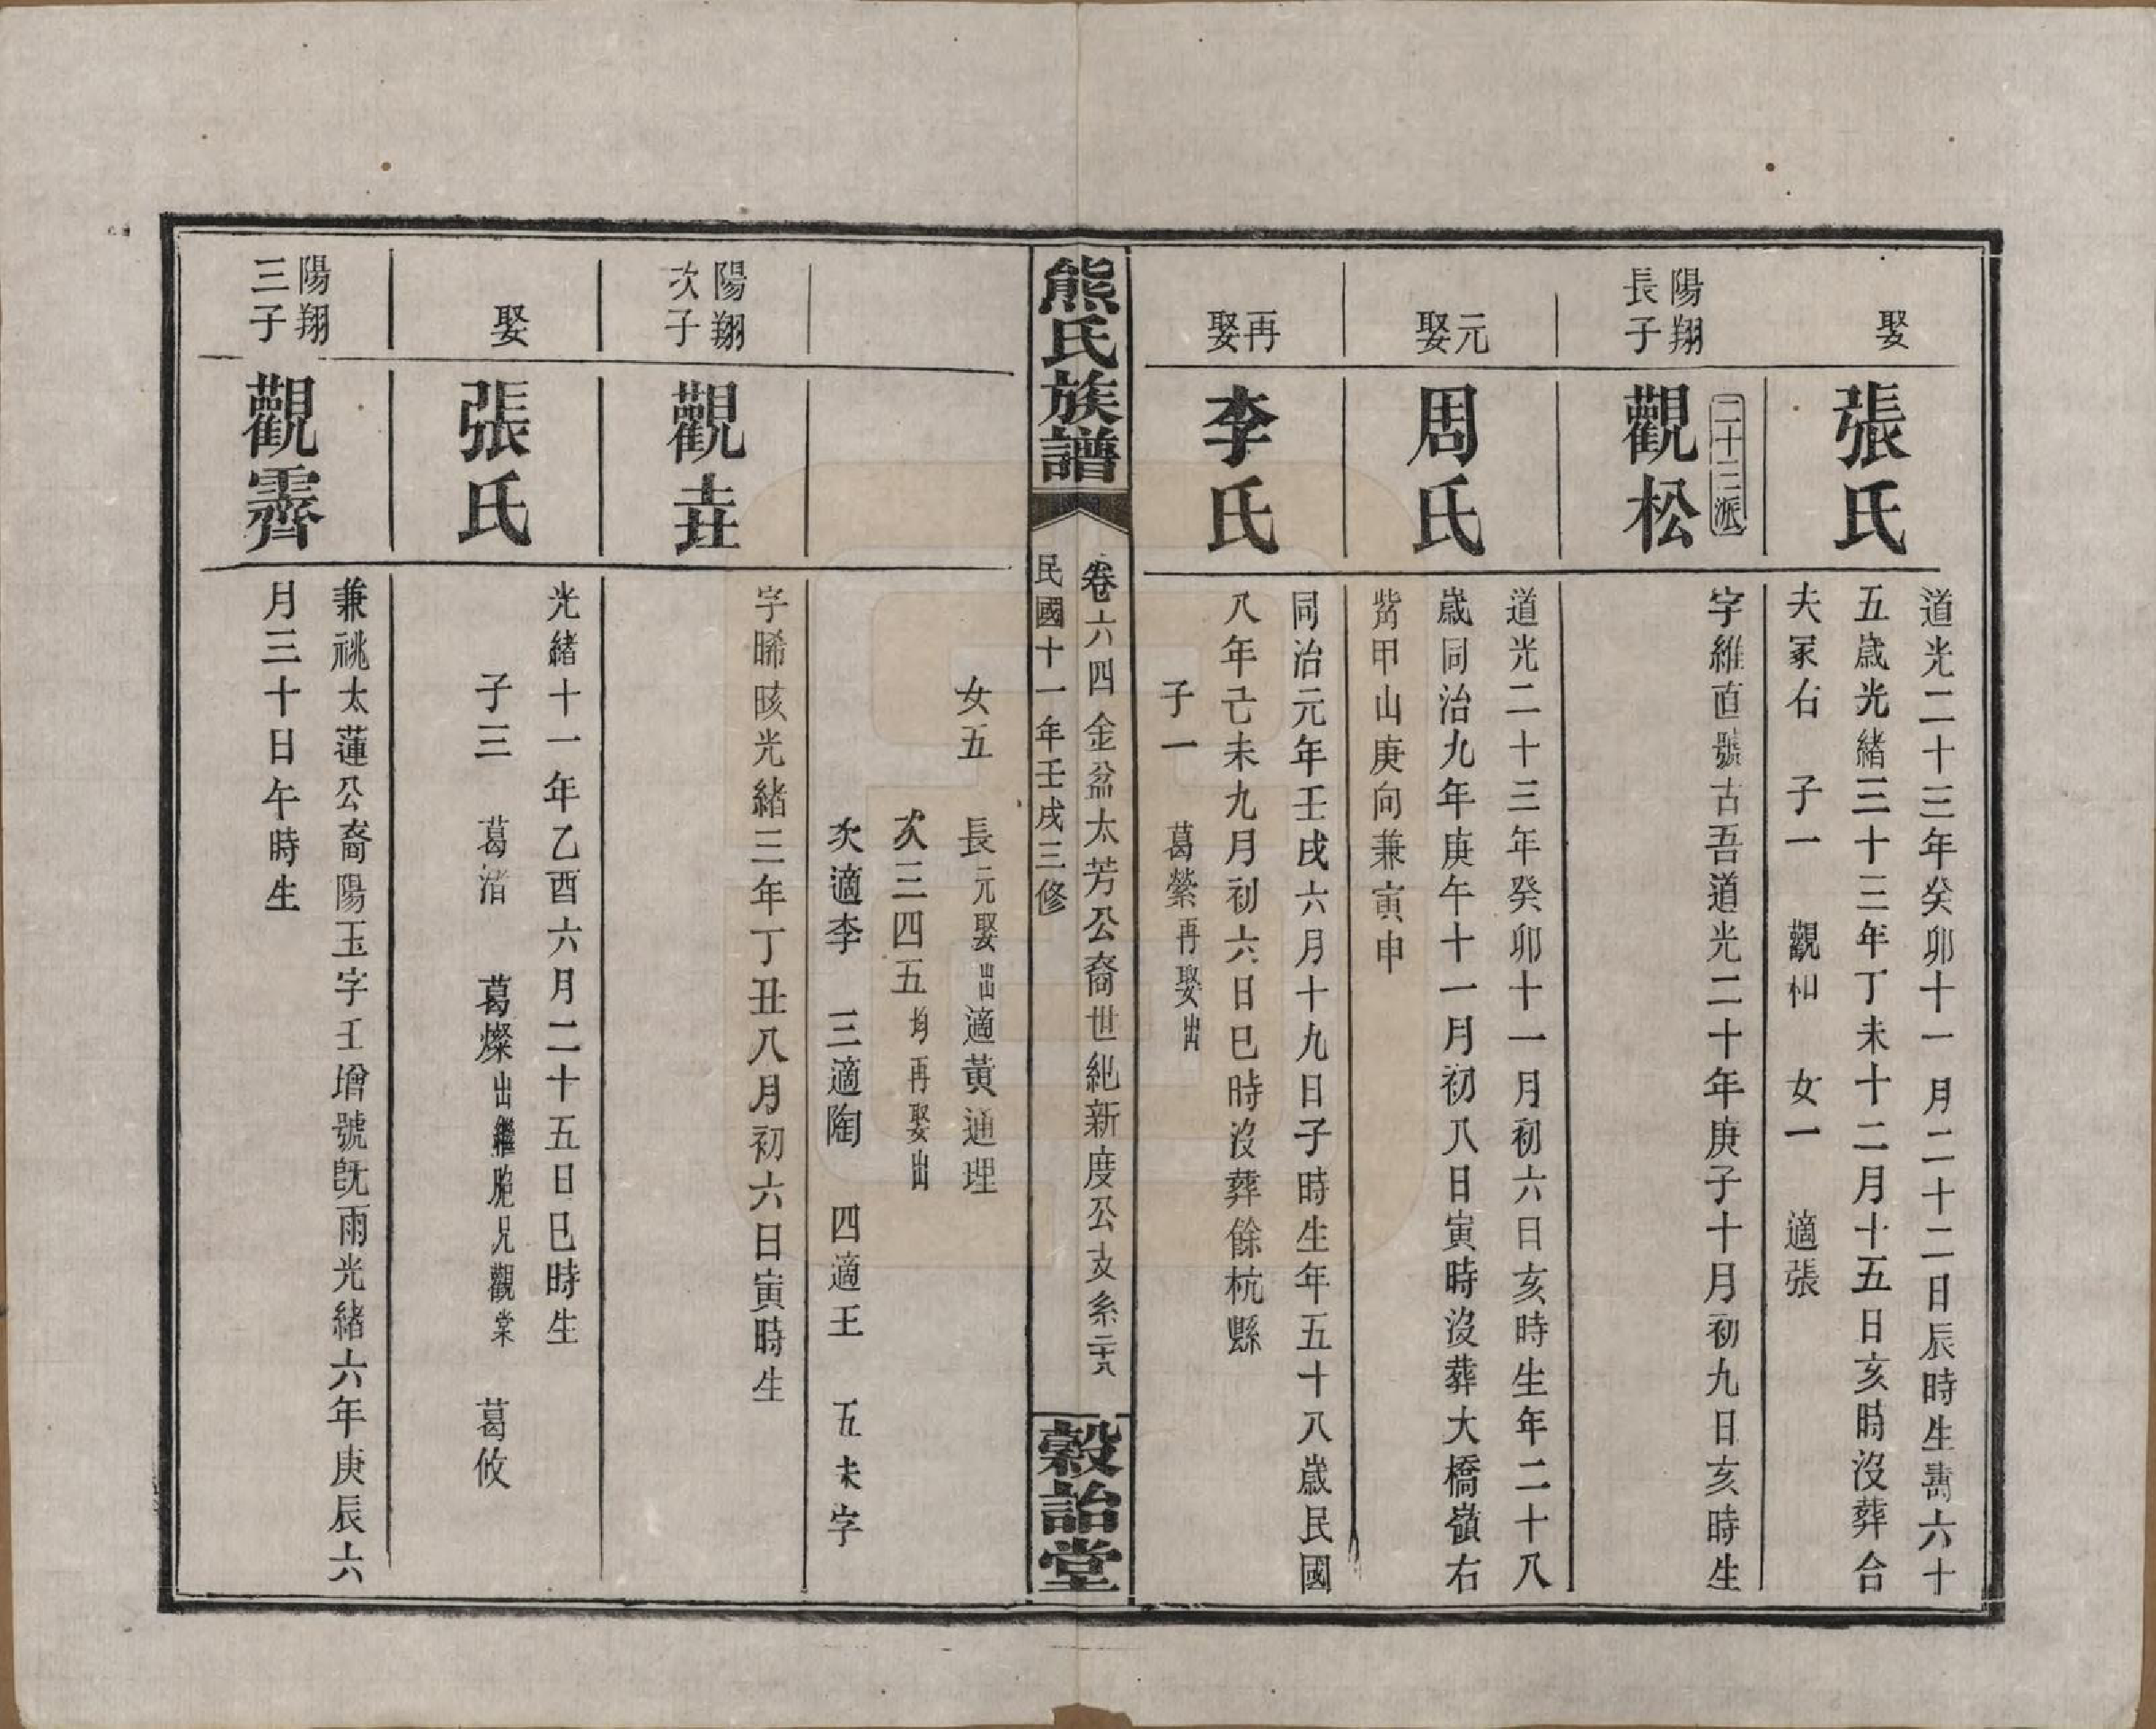 娶
張氏
道光二十三年癸卯十一月二十二日辰時生壽六十
五歲光緒三十三年丁未十二月十五日亥時沒葬合
夫冢右 子一 觀和 女一 適張
陽翔
長子
二十三派
觀松
字維直號古吾道光二十年庚子十月初九日亥時生
元
娶
周氏
道光二十三年癸卯十一月初六日亥時生年二十八
歲同治九年庚午十一月初八日寅時沒葬大橋嶺右
嵴甲山庚向兼寅申
再
娶
李氏
同治元年壬戌六月十九日子時生年五十八歲民國
八年己未九月初六日巳時沒葬餘杭縣
子一 葛縈再娶出
熊氏族譜
卷六四金盆太芳公裔世紀新度公支系二十八
民國十一年壬戌三修
穀詒堂
女五 長元娶出適黃通理
次三四五均再娶出
次適李 三適陶 四適王 五未字
陽翔
次子
觀垚
字晞晐光緒三年丁丑八月初六日寅時生
娶
張氏
光緒十一年乙酉六月二十五日巳時生
子三 葛渚 葛燦出繼胞兄觀棠 葛攸
陽翔
三子
觀霽
兼祧太蓮公裔陽玉字壬增號旣雨光緒六年庚辰六
月三十日午時生